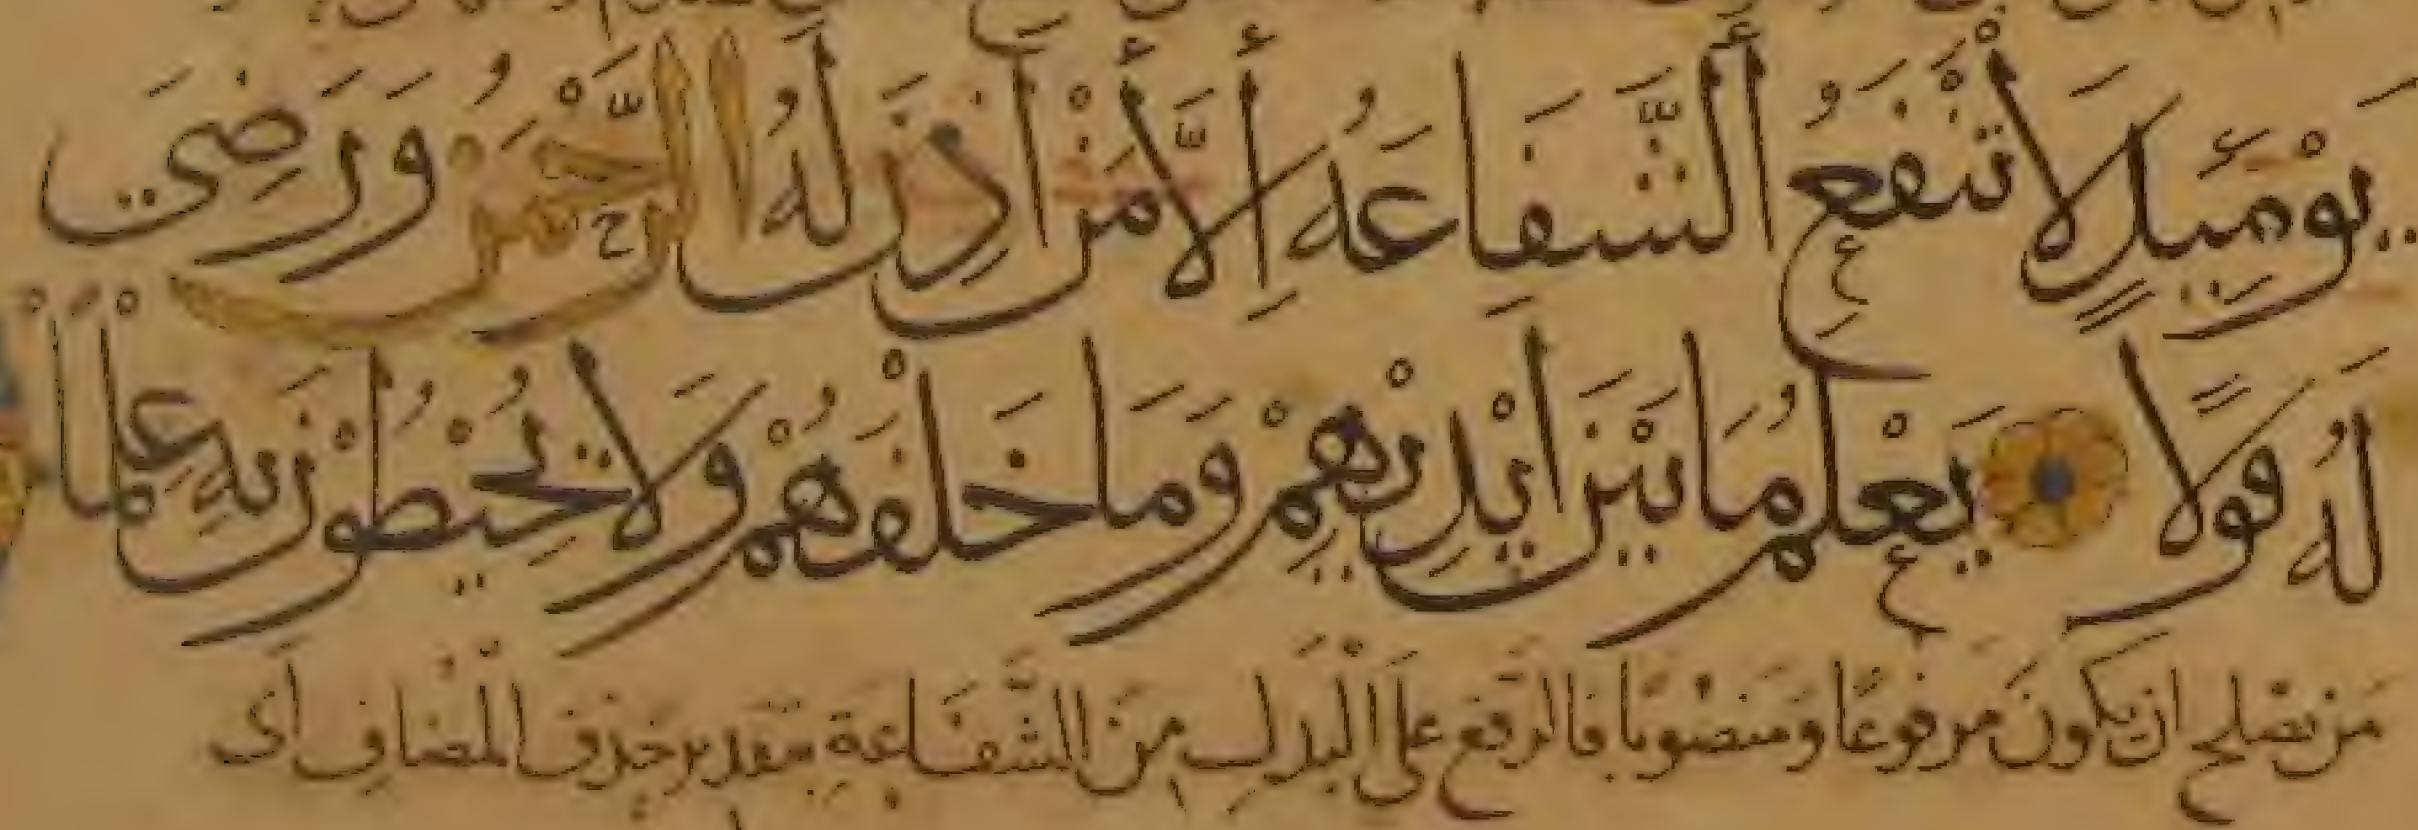 يَوْمَئِذٍ لَا تَنْفَعُ ٱلشَّفَاعَةُ إِلَّا مَنْ أَذِنَ لَهُ الرَّحْمَنُ وَرَضِيَ
لَهُ قَوْلًا يَعْلَمُ مَا بَيْنَ أَيْدِيهِمْ وَمَا خَلْفَهُمْ وَلَا يُحِيْطُوْنَ بِهِ عِلْمًا
مَن يصلح ان يكونَ مرفوعًا وَمنصُوبًا فالرفع على الْبَدَلِ مِنَ الشَّفَاعَةِ بتقدير حذف الْمُضافِ اَى